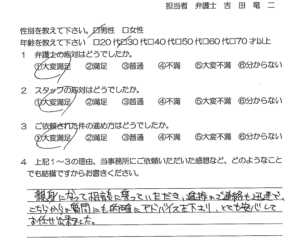 担当者 弁護士 吉田 竜二
性別を教えて下さい。☑男性 □女性
年齢を教えて下さい □20代☑30代□40代□50代□60代□70才以上
1 弁護士の応対はどうでしたか。
①大変満足 ②満足 ③普通 ④不満 ⑤大変不満 ⑥分からない
2 スタッフの応対はどうでしたか。
①大変満足 ②満足 ③普通 ④不満 ⑤大変不満 ⑥分からない
3 ご依頼された件の進め方はどうでしたか。
①大変満足 ②満足 ③普通 ④不満 ⑤大変不満 ⑥分からない
4 上記1～3の理由、当事務所にご依頼いただいた感想など、どのようなこと
でも結構ですからお書きください。
親身になって相談に乗っていただき、進捗のご連絡も迅速で、
こちらからの質問にも的確にアドバイスを下さり、とても安心して
お任せ出来ました。